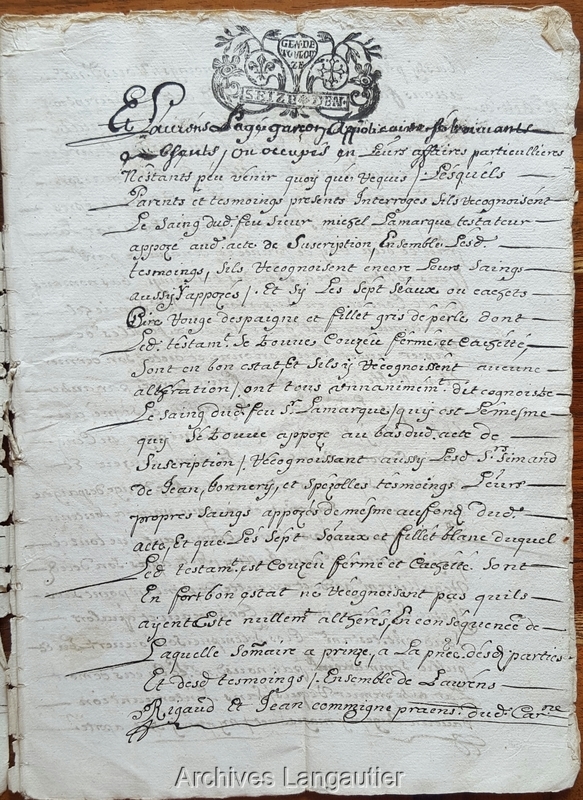 GEN. DE
TOULOU
ZE
SEIZE DEN
Et Laurens Lage garcon Appoticaire se trouvants
absants / ou occupés en Leurs affaires particullieres
N'estants peu venir quoy que requis / Lesquels
Parents et tesmoings presents Interroges sils recognoisent
Le saing dud. feu sieur michel Lamarque testateur
appozé aud. acte de suscription, Ensemble Lesd.
tesmoings, sils recognoisent encore Leurs saings
aussy appozés /. Et sy Les sept seaux ou cachets
Cire Rouge despaigne et fillet gris de perle dont
Led. testamt. se trouve Couzeu fermé et Cacheté,
sont en bon estat, Et sils y recognoissent aucune
altheration / ont tous unnanimemt. dit cognoistre
Le saing dud. feu Sr. Lamarque / quy est Le mesme
quy se trouve appozé au bas dud. acte de
suscription /. recognoissant aussy Lesd. Srs. simand
de Jean, bonnery, et spezolles tesmoings Leurs
propres saings appozés de mesme au fond dud.
acte, Et que Les sept seaux et fillet blanc duquel
Led. testamt. est Couzeu fermé et Cacheté sont
En fort bon estat ne recognoisent pas quils
ayent Esté nullemt. altherés, En consequence de
Laquelle somaire a prinze, a La pnce. desd. parties
Et desd. tesmoings /. Ensemble de Laurens
Rigaud Et Jean commigne praens. dud. Carne.
Archives Langautier